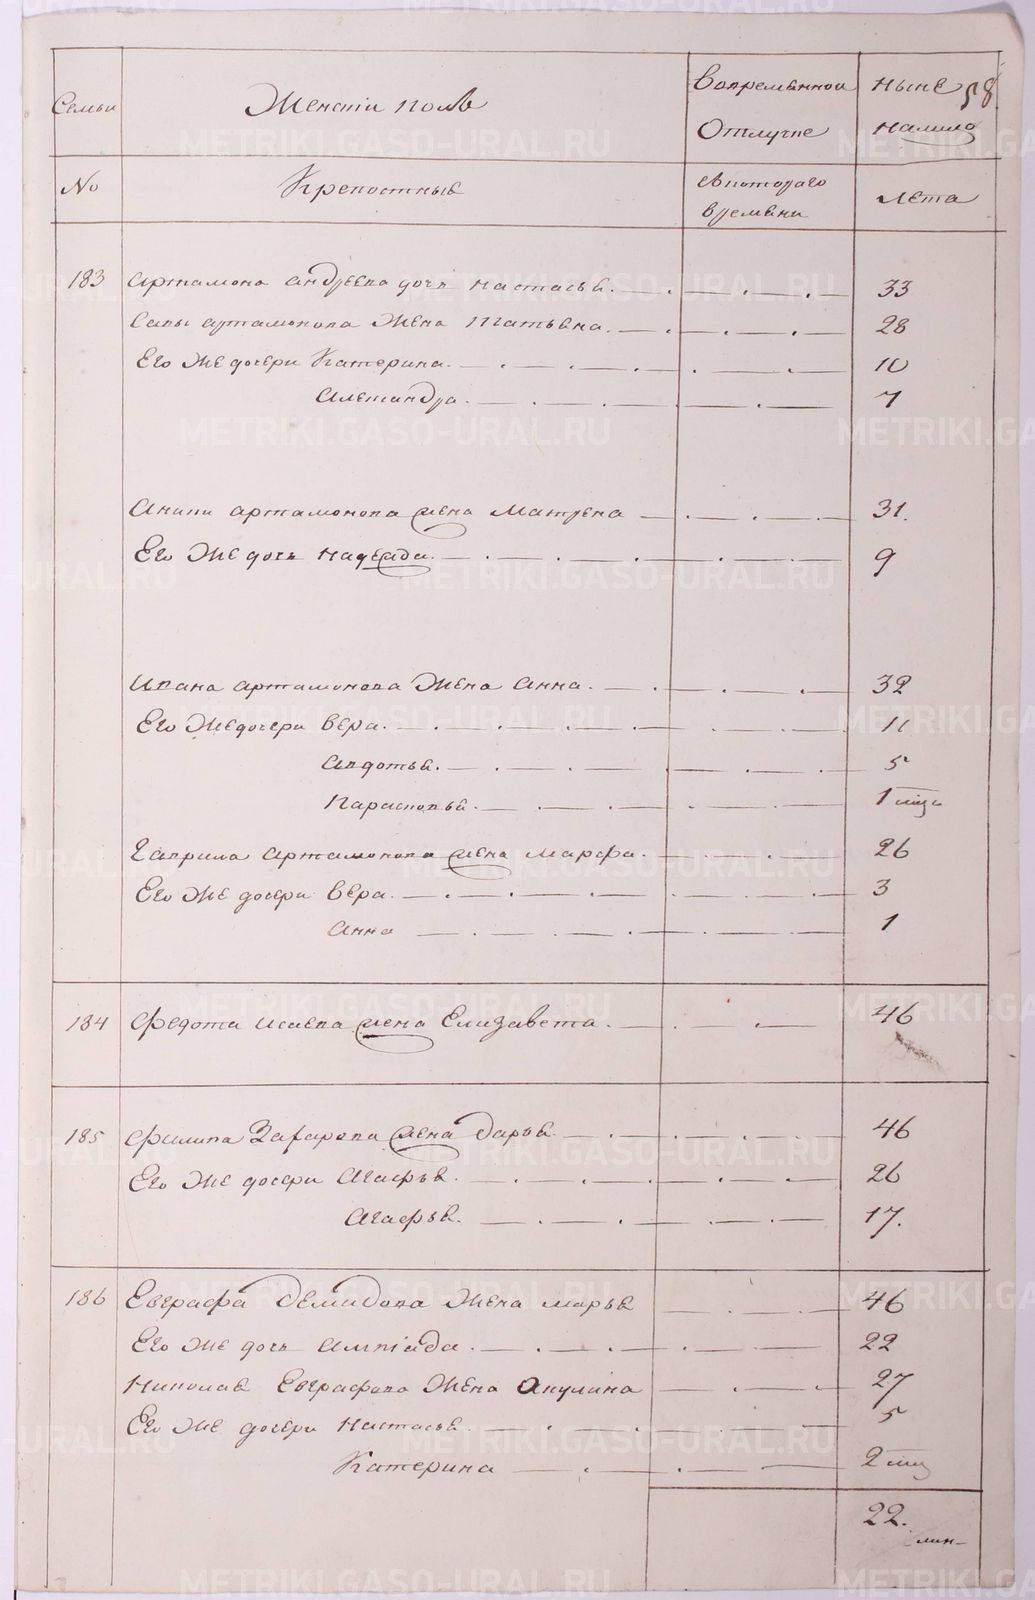 58
Семьи Женскiй полъ вовремѣнной ныне
Отлучке на лицо
No Крепостныя съ котораго лета
времѣни
183 Артамона андреева дочь настасья. 33
Савы артамонова жена татьяна. 28
Его же дочери Катерина. 10
Александра. 7
Аники артамонова жена матрена 31.
Его же дочь надежда. 9
Ивана артамонова жена анна. 32
Его же дочери вера. 11
авдотья. 5
Парасковья. 1 мц
Гаврила артамонова жена марфа. 26
Его же дочери вера. 3
анна 1
184 Федота исаева жена Елизавета. 46
185 Филипа Захарова жена дарья. 46
Его же дочери Агафья. 26
Агафья. 17.
186 Евграфа демидова жена марья 46
Его же дочь алмпiада. 22
Николая Евграфова жена Акулина 27
Его же дочери настасья. 5
Катерина 2 мц
22.
METRIKI.GASO-URAL.RU